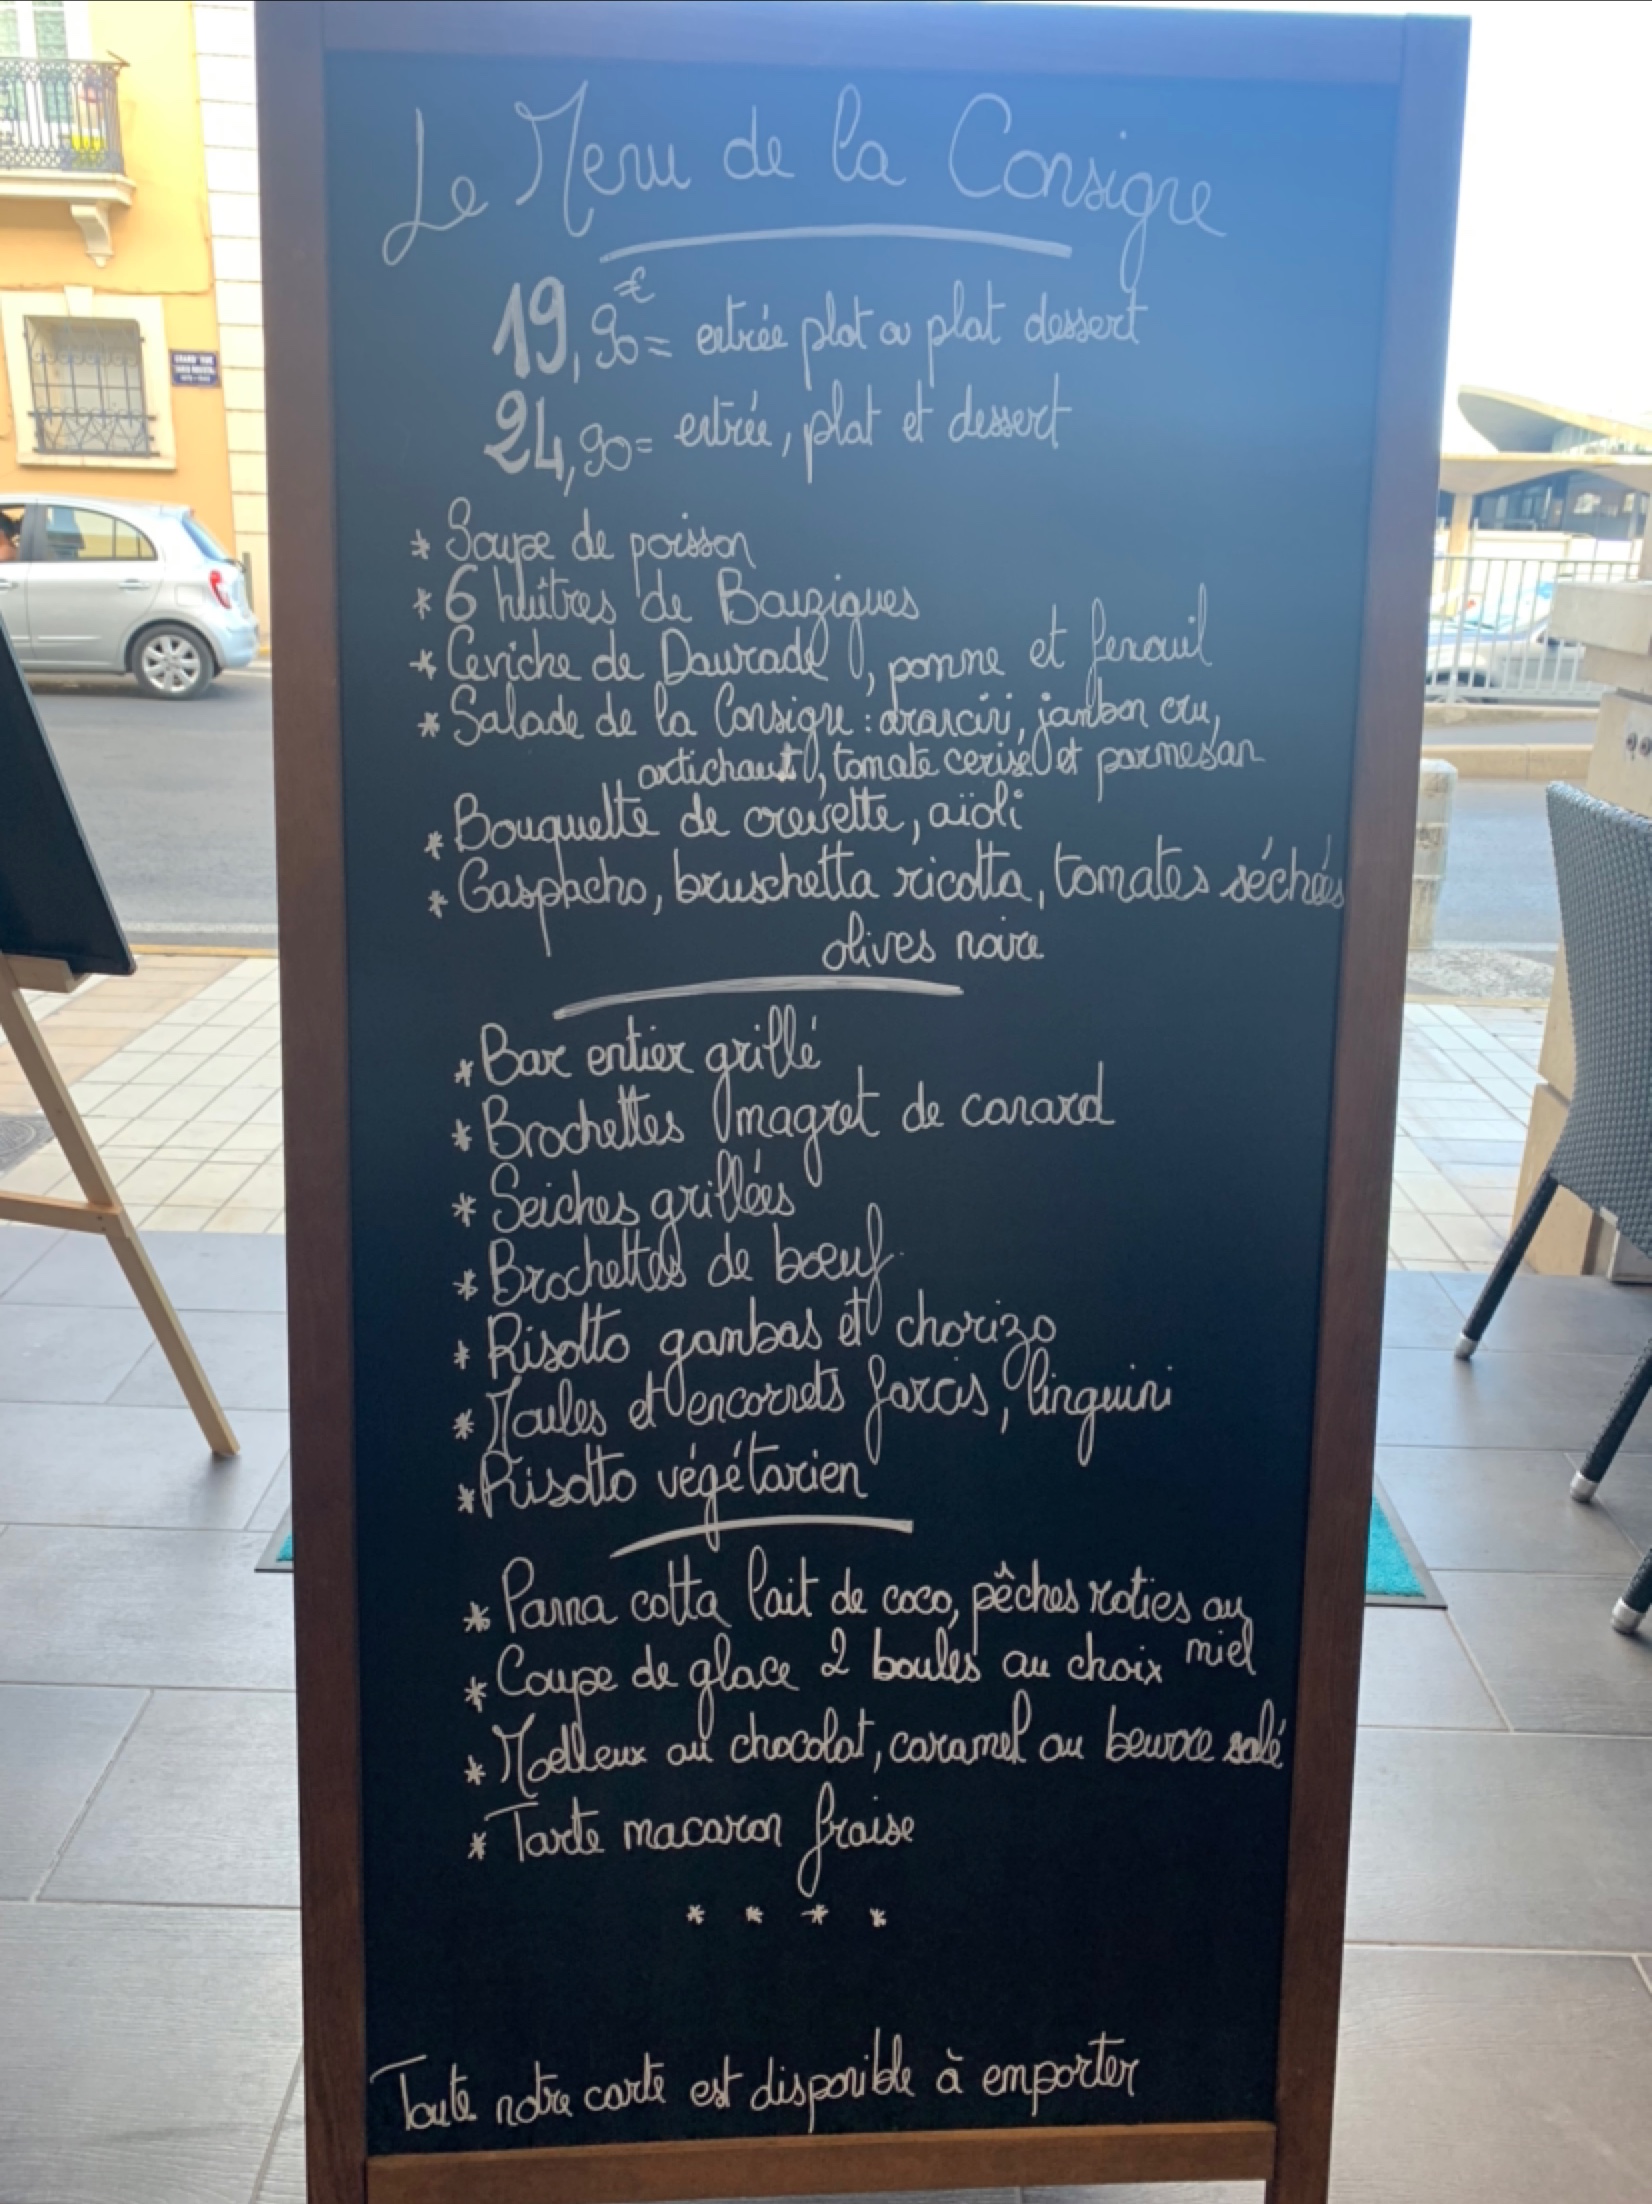 Le Menu de la Consigne
19,90€ = entrée plat ou plat dessert
24,90 = entrée, plat et dessert
* Soupe de poisson
* 6 huîtres de Bouzigues
* Ceviche de Daurade, pomme et fenouil
* Salade de la Consigne : , jambon cru,
artichaut, tomate cerise et parmesan
* Bouquette de crevette, aïoli
* Gaspacho, bruschetta ricotta, tomates séchées
olives noire
* Bar entier grillé
* Brochettes magret de canard
* Seiches grillées
* Brochettes de bœuf
* Risotto gambas et chorizo
* Moules et encornets farcis, linguini
* Risotto végétarien
* Panna cotta lait de coco, pêches roties au
miel
* Coupe de glace 2 boules au choix
* Moelleux au chocolat, caramel au beurre salé
* Tarte macaron fraise
* * * *
Toute notre carte est disponible à emporter